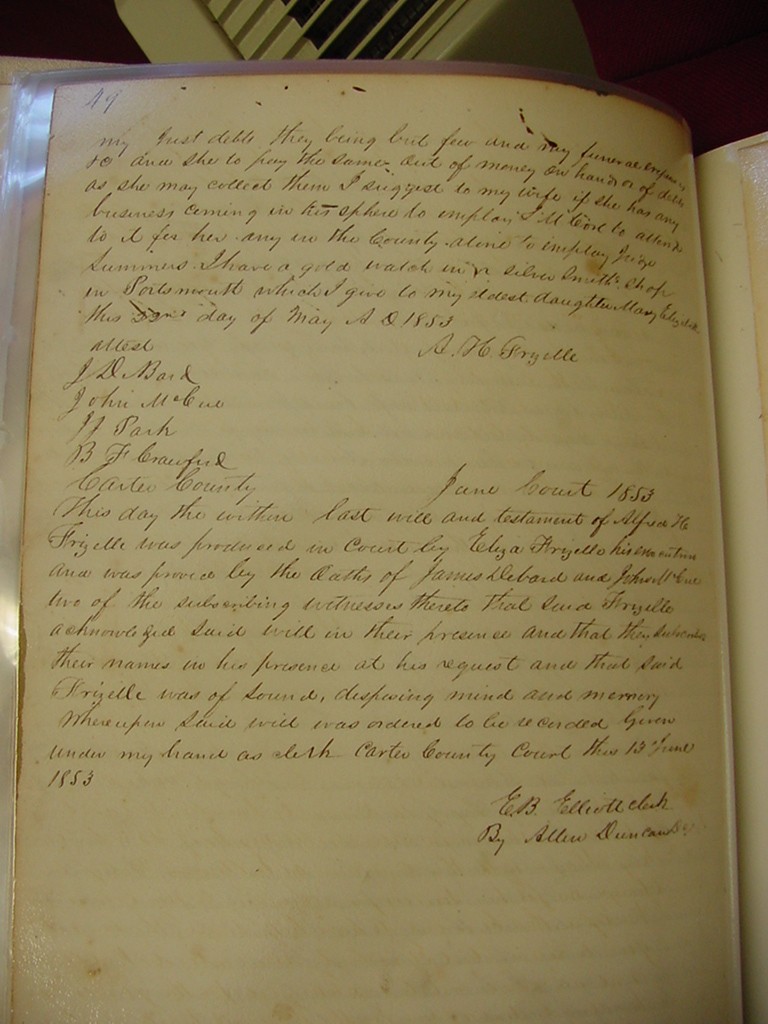 49
my Just debts they being but few and my funeral expenses
&c and she to pay the same out of money on hand or of debts
as she may collect them I suggest to my wife if she has any
business coming in his sphere to employ to attend
to it for her any in the County aline to employ Judge
Summers. I have a gold watch in a silver Smiths Shop
in Portsmouth which I give to my eldest daughter Mary Elizabeth
this day of May A D 1853
A. H. Frizelle
Attest
J DeBard
John McCue
JJ Park
B F Crawford
Carter County June Court 1853
This day the within last will and testament of Alfred H
Frizelle was produced in Court by Eliza Frizelle his executrix
and was proved by the Oaths of James Debard and John McCue
two of the subscribing witnesses thereto that said Frizelle
acknowledged said will in their presence and that they subscribed
their names in his presence at his request and that said
Frizelle was of sound, disposing mind and memory
Whereupon said will was ordered to be recorded Given
under my hand as clerk Carter County Court this 13th June
1853
E.B. Elliott clerk
By Allen Duncan DC